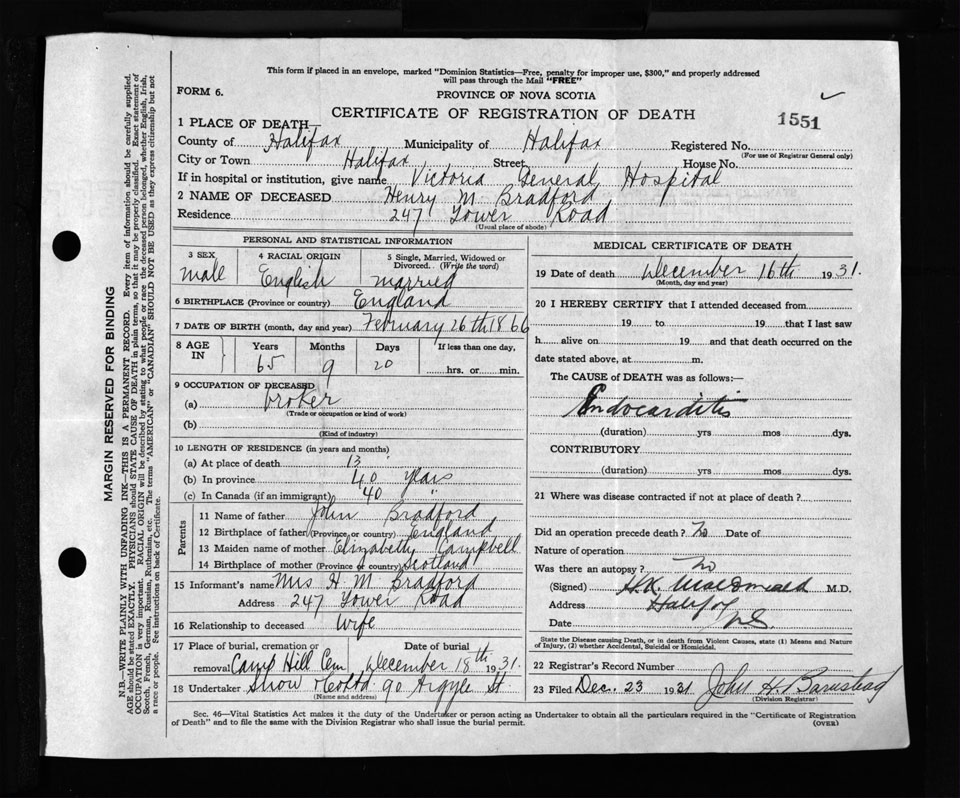 This form if placed in an envelope, marked "Dominion Statistics—Free, penalty for improper use, $300," and properly addressed
will pass through the Mail "FREE"
FORM 6.
PROVINCE OF NOVA SCOTIA
CERTIFICATE OF REGISTRATION OF DEATH
1551
1 PLACE OF DEATH—
County of Halifax Municipality of Halifax Registered No.
(For use of Registrar General only)
City or Town Halifax Street House No.
If in hospital or institution, give name Victoria General Hospital
2 NAME OF DECEASED Henry M. Bradford
Residence 247 Tower Road
(Usual place of abode)
MARGIN RESERVED FOR BINDING
N.B.—WRITE PLAINLY WITH UNFADING INK—THIS IS A PERMANENT RECORD. Every item of information should be carefully supplied.
AGE should be stated EXACTLY. PHYSICIANS should STATE CAUSE OF DEATH in plain terms, so that it may be properly classified. Exact statement of
OCCUPATION is very important. RACIAL ORIGIN will be described by stating to what people or race the deceased person belonged, whether English, Irish,
Scotch, French, German, Russian, Ruthenian, etc. The terms "AMERICAN" or "CANADIAN" SHOULD NOT BE USED as they express citizenship but not
a race or people. See instructions on back of Certificate.
PERSONAL AND STATISTICAL INFORMATION
3 SEX
male
4 RACIAL ORIGIN
English
5 Single, Married, Widowed or
Divorced.. (Write the word)
married
6 BIRTHPLACE (Province or country) England
7 DATE OF BIRTH (month, day and year) February 26th 1866
8 AGE
IN
Years Months Days If less than one day,
65 9 20 hrs. or min.
9 OCCUPATION OF DECEASED
(a) broker
(Trade or occupation or kind of work)
(b)
(Kind of industry)
10 LENGTH OF RESIDENCE (in years and months)
(a) At place of death 13
(b) In province 40 years
(c) In Canada (if an immigrant) 40 "
Parents
11 Name of father John Bradford
12 Birthplace of father (Province or country) England
13 Maiden name of mother Elizabeth Campbell
14 Birthplace of mother (Province or country) Scotland
15 Informant's name Mrs H. M. Bradford
Address 247 Tower Road
16 Relationship to deceased wife
17 Place of burial, cremation or
removal Camp Hill Cem
Date of burial
December 18th 1931.
18 Undertaker Snow & Co Ltd. 90 Argyle St.
(Name and address)
MEDICAL CERTIFICATE OF DEATH
19 Date of death December 16th 1931.
(Month, day and year)
20 I HEREBY CERTIFY that I attended deceased from
19 to 19 that I last saw
h alive on 19 and that death occurred on the
date stated above, at m.
The CAUSE of DEATH was as follows:—
Endocarditis
(duration) yrs mos dys.
CONTRIBUTORY
(duration) yrs mos dys.
21 Where was disease contracted if not at place of death?
Did an operation precede death? No Date of
Nature of operation
Was there an autopsy? No
(Signed) H.K. MacDonald M.D.
Address Halifax
Date N.S.
State the Disease causing Death, or in death from Violent Causes, state (1) Means and Nature
of Injury, (2) whether Accidental, Suicidal or Homicidal.
22 Registrar's Record Number
23 Filed Dec. 23 1931 John H. Barnstead
(Division Registrar)
Sec. 46—Vital Statistics Act makes it the duty of the Undertaker or person acting as Undertaker to obtain all the particulars required in the "Certificate of Registration
of Death" and to file the same with the Division Registrar who shall issue the burial permit.
(OVER)